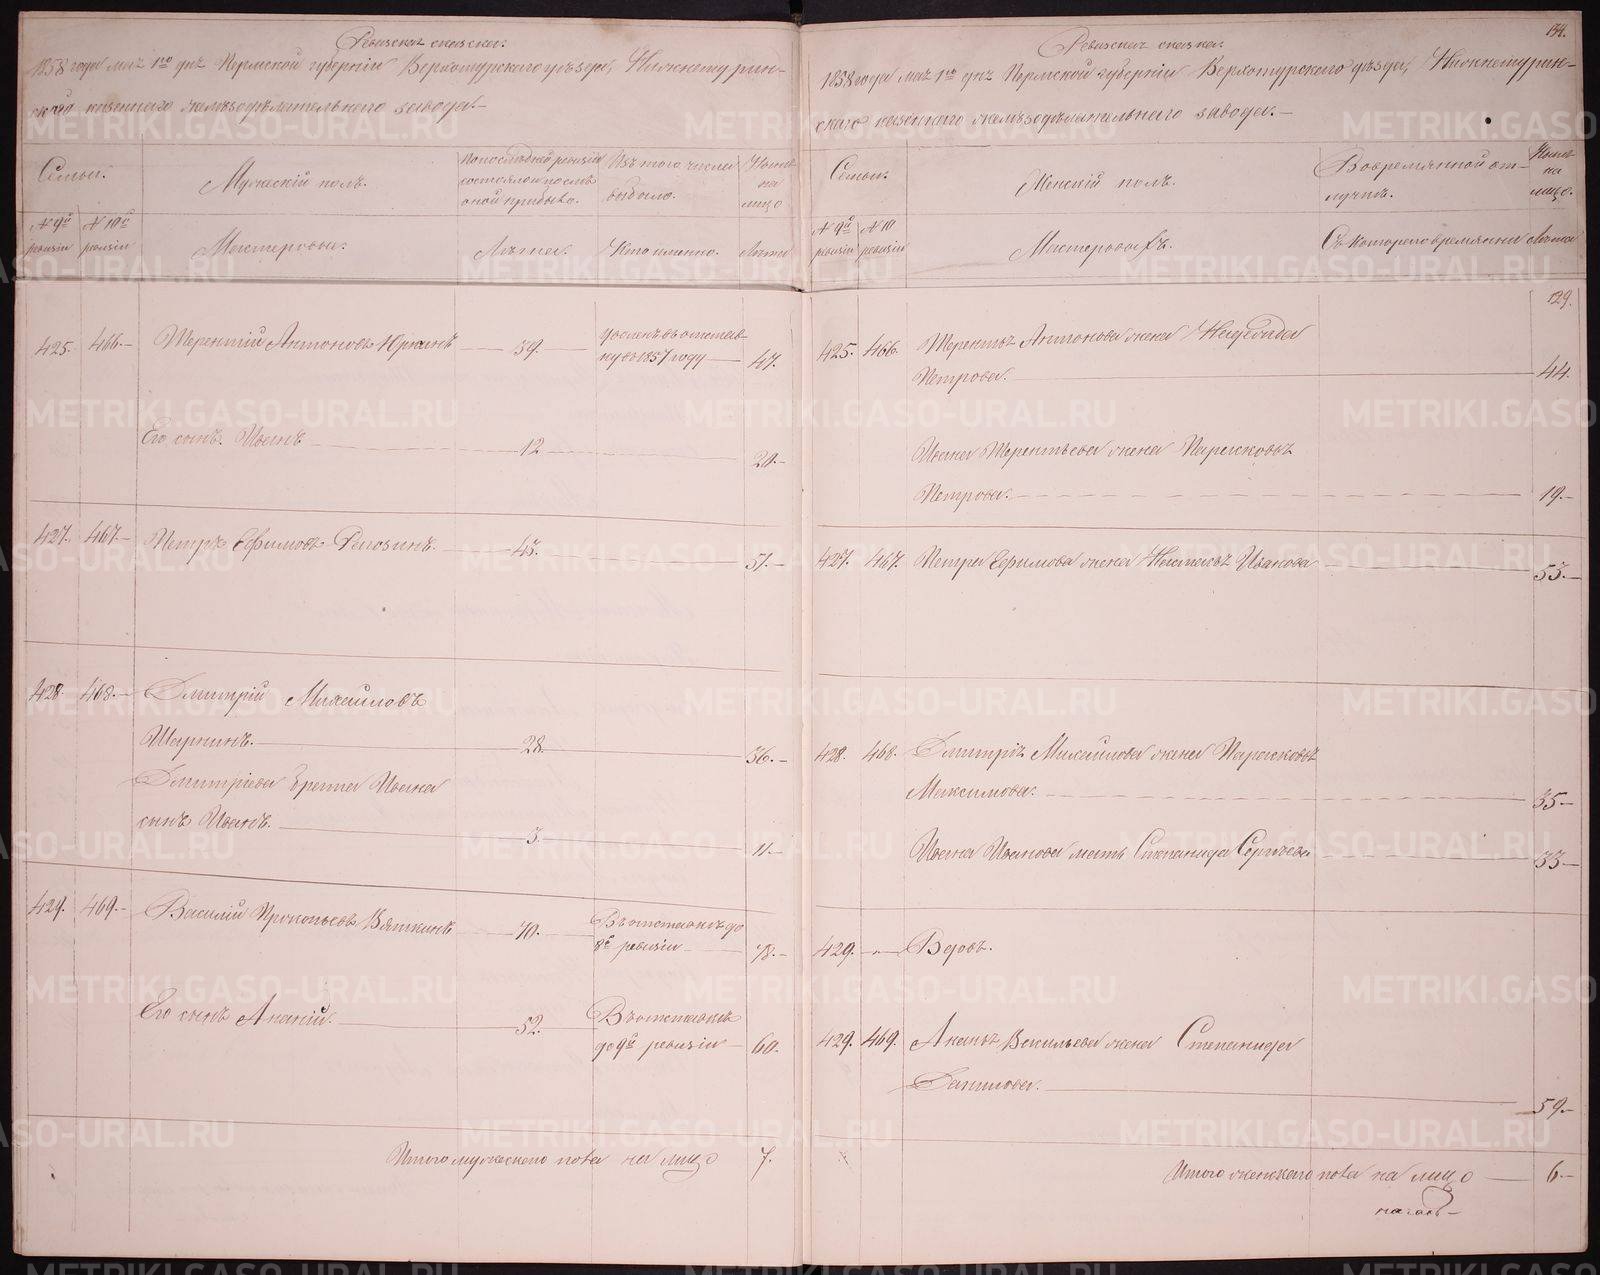 Ревизская сказка.
1858 года мая 1го дня Пермской губернiи Верхотурскаго уѣзда, Нижнетурин-
скаго казеннаго желѣзодѣлательнаго завода.
Семьи.
Мужескiй полъ.
По последней ревизiи
состояло и послѣ
оной прибыло.
Изъ того числа
выбыло.
Нынѣ
на
лицо
№ 9й
ревизiи
№ 10й
ревизiи
Мастеровые.
Лѣта.
Кто именно.
Лѣта
425. 466. Терентiй Антоновъ 39. уволенъ въ отстав-
ку въ 1857 году 47.
Его сынъ Иванъ 12 20.
427. 467. Петръ Ефимовъ Рагозинъ. 43. 51.
428. 468. Дмитрiй Михайловъ
28. 36.
Дмитрiева брата Ивана
сынъ Иванъ. 3. 11.
429. 469. Василiй Прокопьевъ Вяткинъ 70. Въ отставкѣ до
8й ревизiи 78.
Его сынъ Ананiй. 52. Въ отставкѣ
до 9й ревизiи 60.
Итого мужескаго пола на лицо 7.
134.
Ревизская сказка.
1858 года мая 1го дня Пермской губернiи Верхотурскаго уѣзда, Нижнетурин-
скаго казеннаго желѣзодѣлательнаго завода.
Семьи.
Женскiй полъ.
Во временной от-
лучкѣ.
Нынѣ
на
лицо.
№ 9й
ревизiи
№ 10
ревизiи
Мастеровыхъ.
Съ котораго времяни
Лѣта
129.
425. 466. Терентья Антонова жена Надежда
Петрова. 44.
Ивана Терентьева жена Парасковья
Петрова. 19.
427. 467. Петра Ефимова жена Настасья Иванова 53.
428. 468. Дмитрiя Михайлова жена Парасковья
Максимова. 35
Ивана Иванова мать Степанида Сергѣева 33
429. Вдовъ.
429. 469. Ананья Васильева жена Степанида
Данилова. 59.
Итого женскаго пола на лицо 6.